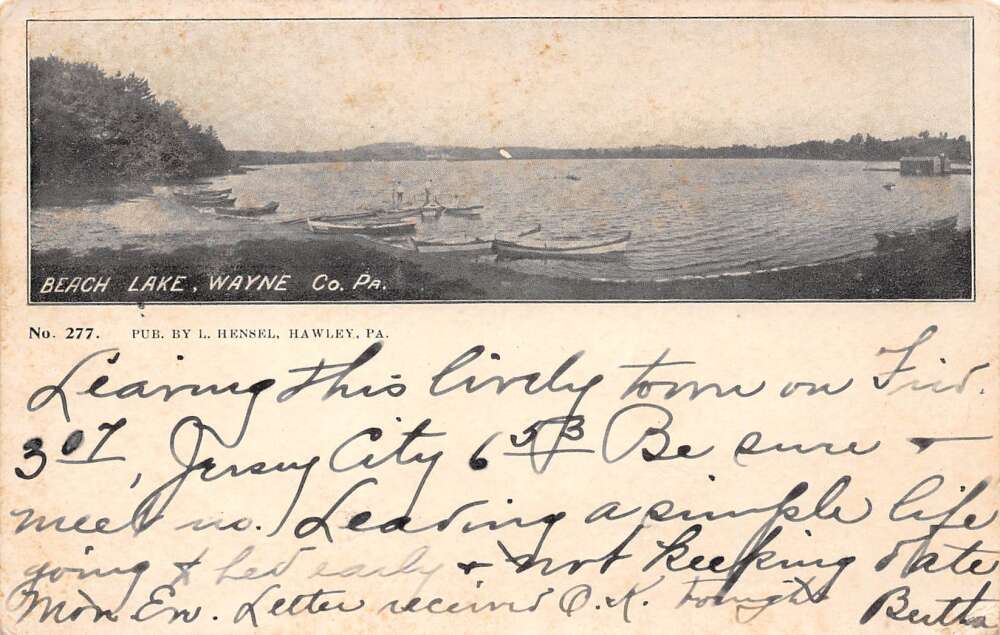 BEACH LAKE, WAYNE Co. PA.
No. 277. PUB. BY L. HENSEL, HAWLEY, PA.
Leaving this lively town on Frid.
3 07, Jersey City 6 53 Be sure +
meet us. Leading a simple life
going to bed early + not keeping date
Mon Ev. Letter received O.K. tonight Bertha